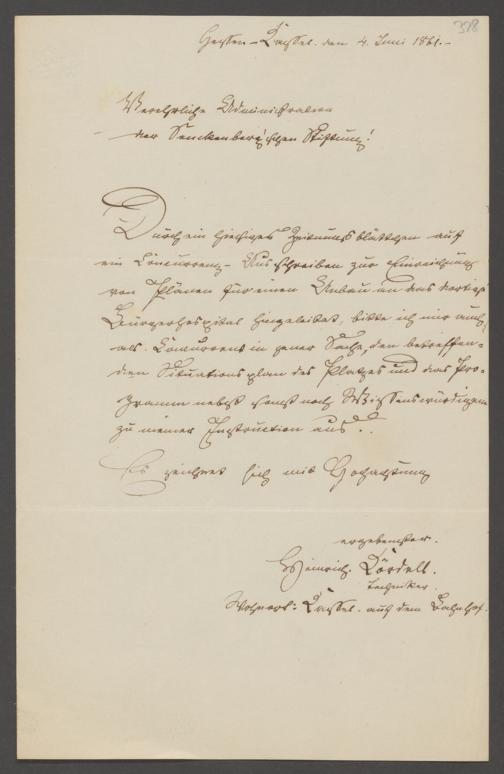 378
Hessen-Cassel. den 4. Juni 1861.-
Verehrliche Administration
der Senckenberg'schen Stiftung!
Durch ein hiesiges Zeitungsblättchen auf
ein Concurrenz-Ausschreiben zur Einreichung
von Plänen für einen Anbau an das dortige
Bürgerhospital hingeleitet, bitte ich mir auch,
als Concurrent in jener Sache, den betreffen-
den Situationsplan des Platzes und das Pro-
gramm nebst sonst noch Wissenswürdigem
zu meiner Instruction aus..
Es zeichnet sich mit Hochachtung
ergebenster.
Heinrich
Techniker.
Wohnort: Cassel. auf dem Bahnhof.